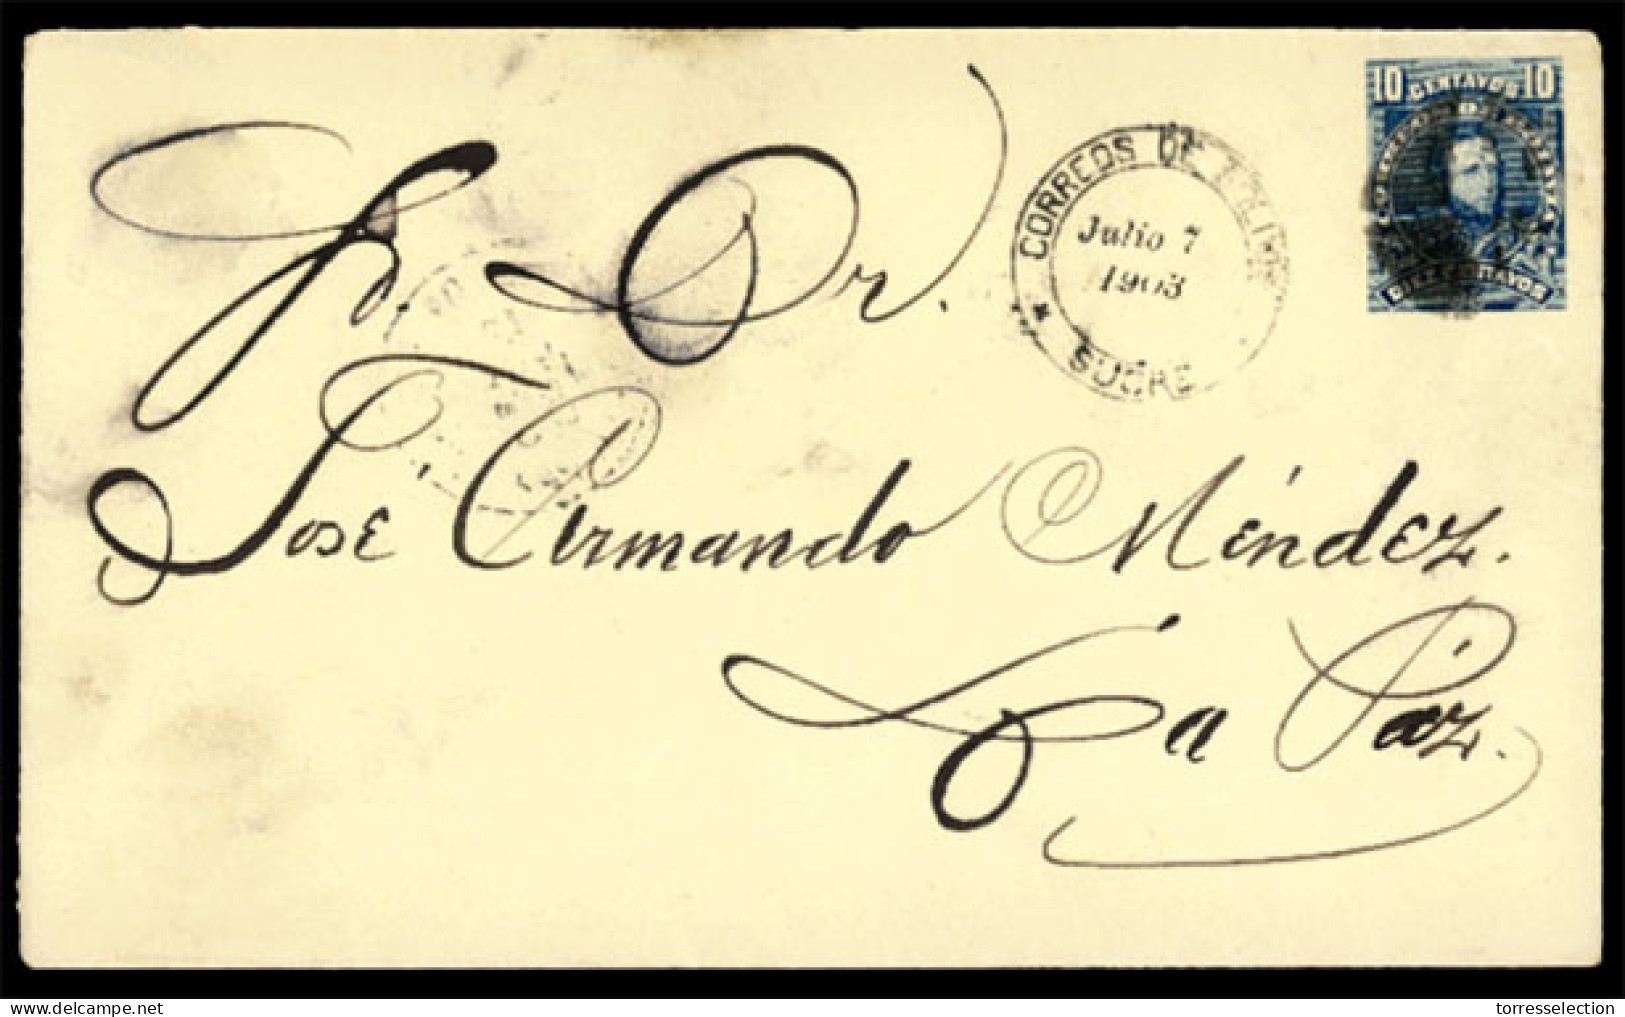 10 CENTAVOS 10
CORREOS DE BOLIVIA
Julio 7
1903
* SUCRE
DIEZ CENTAVOS
Sr. Dr.
José Armando Méndez.
La Paz.
torresselection